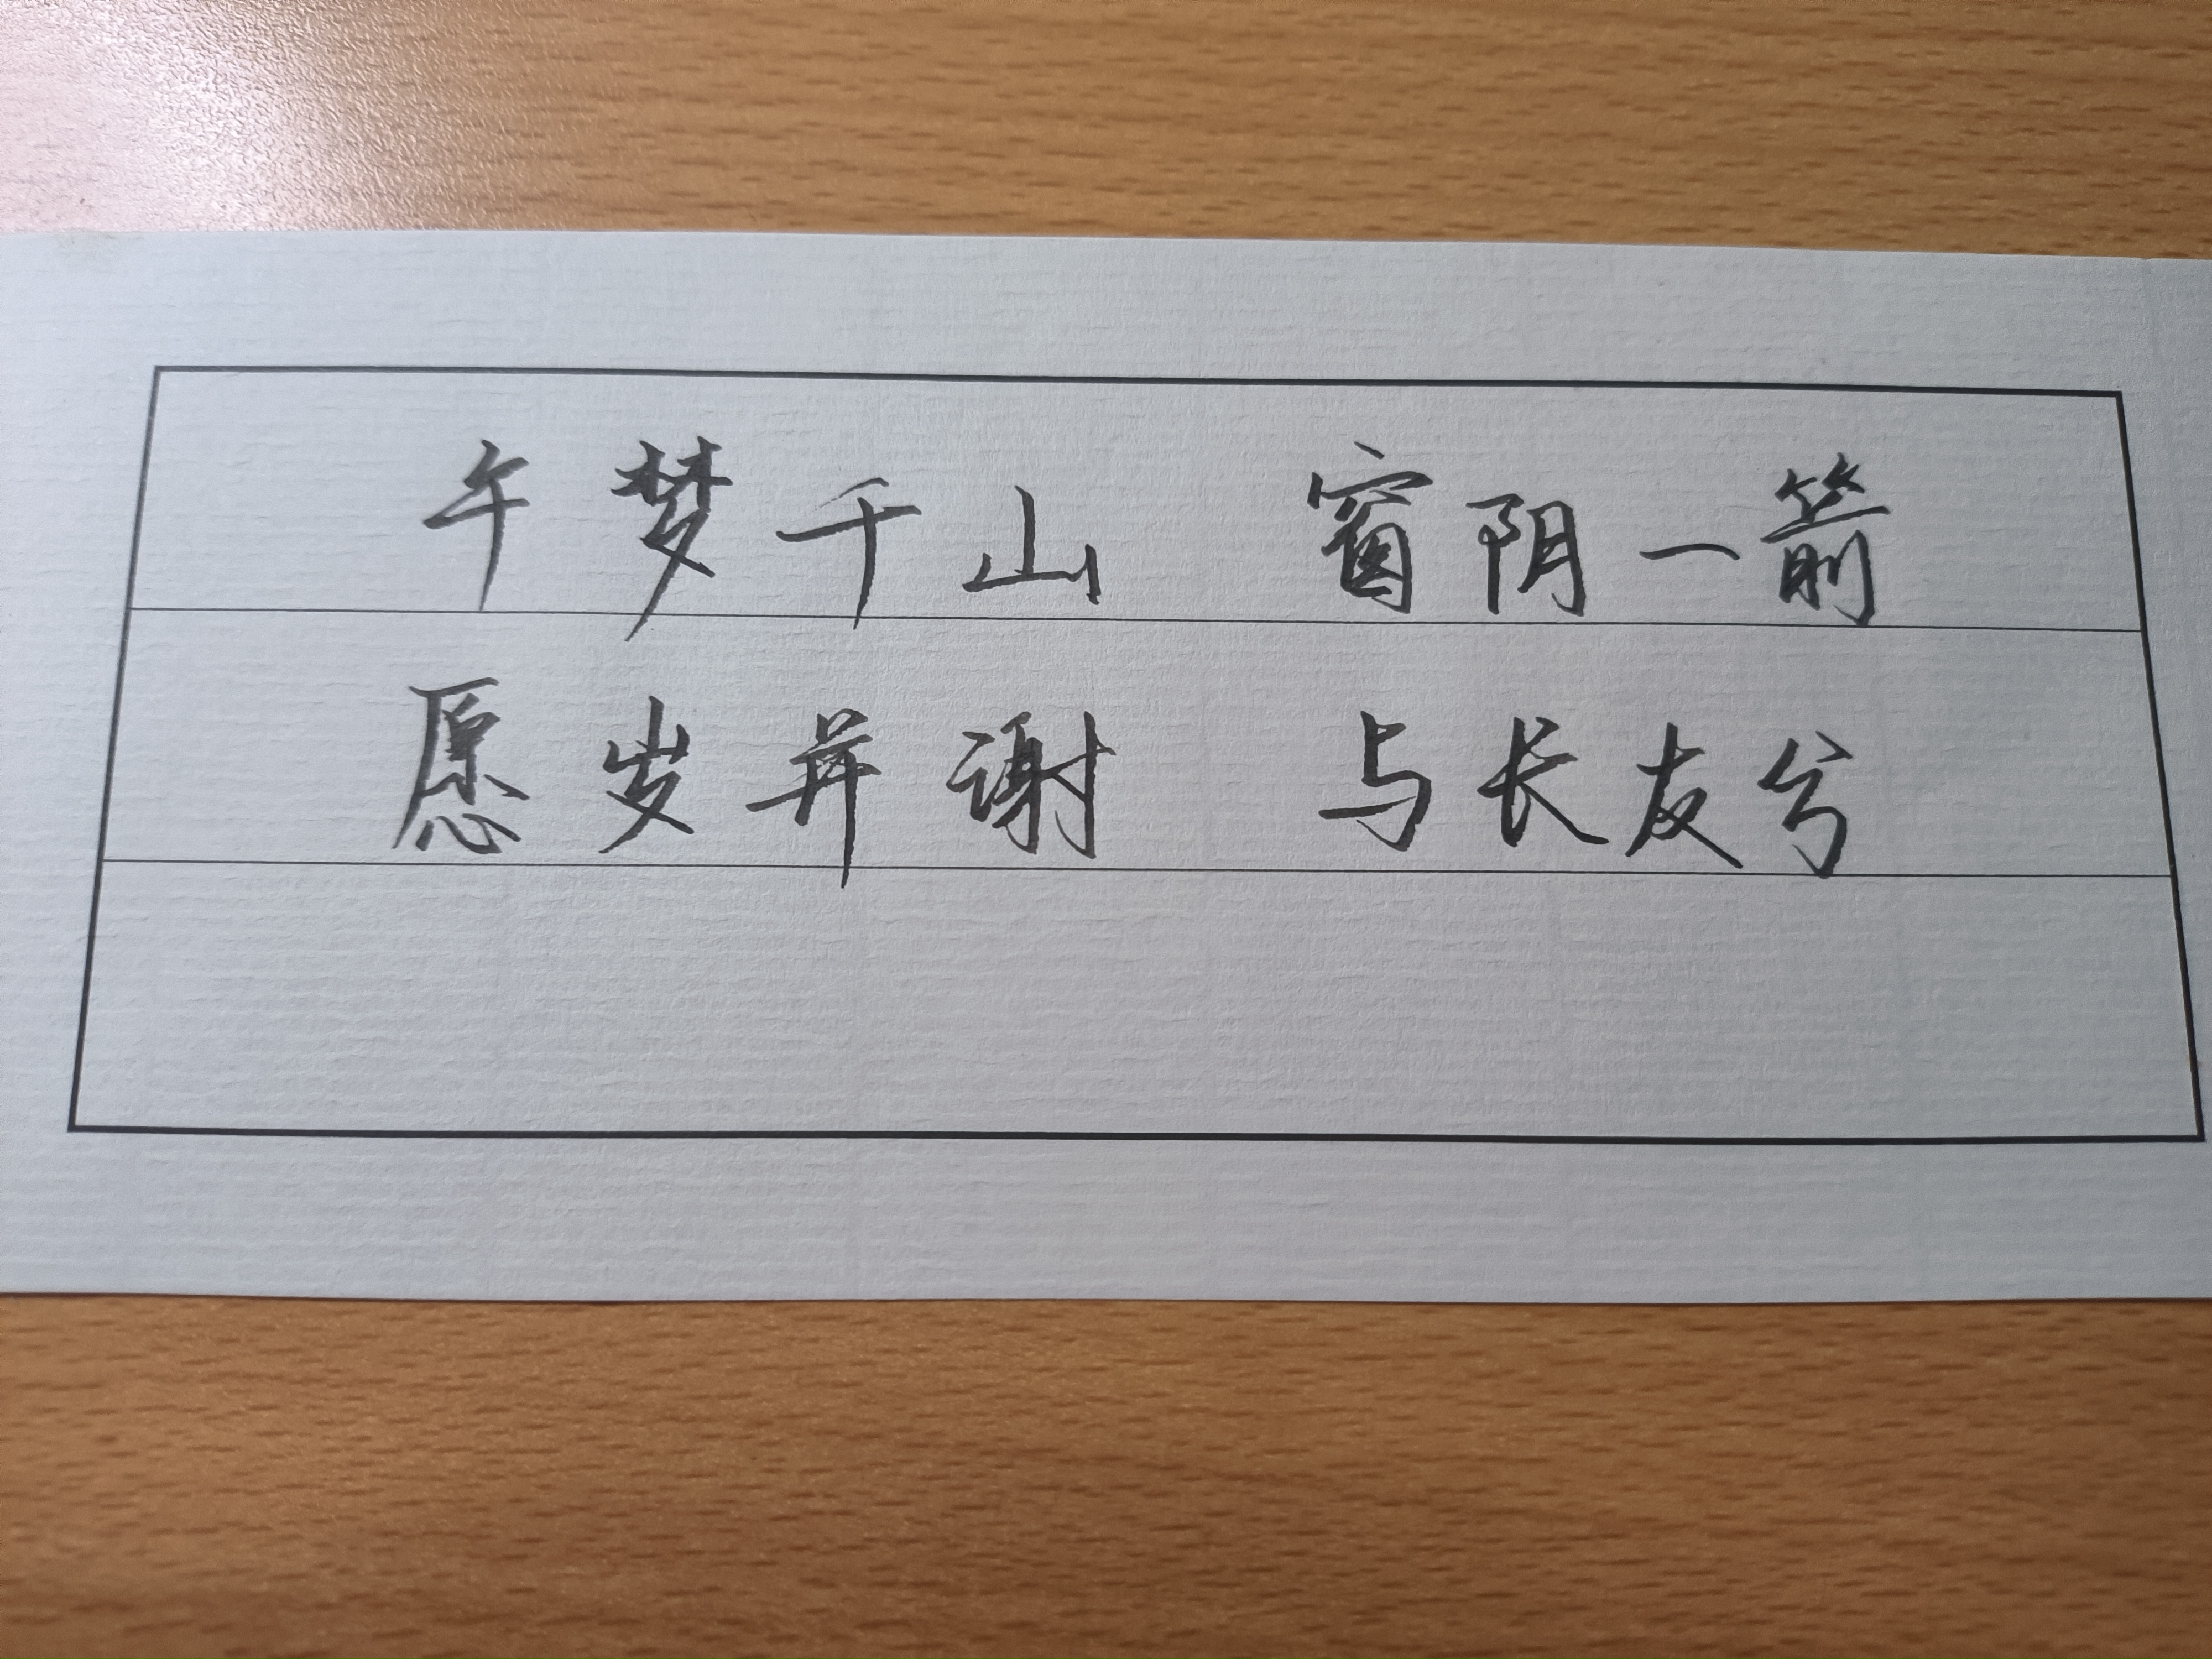 午梦千山 窗阴一箭
愿岁并谢 与长友兮